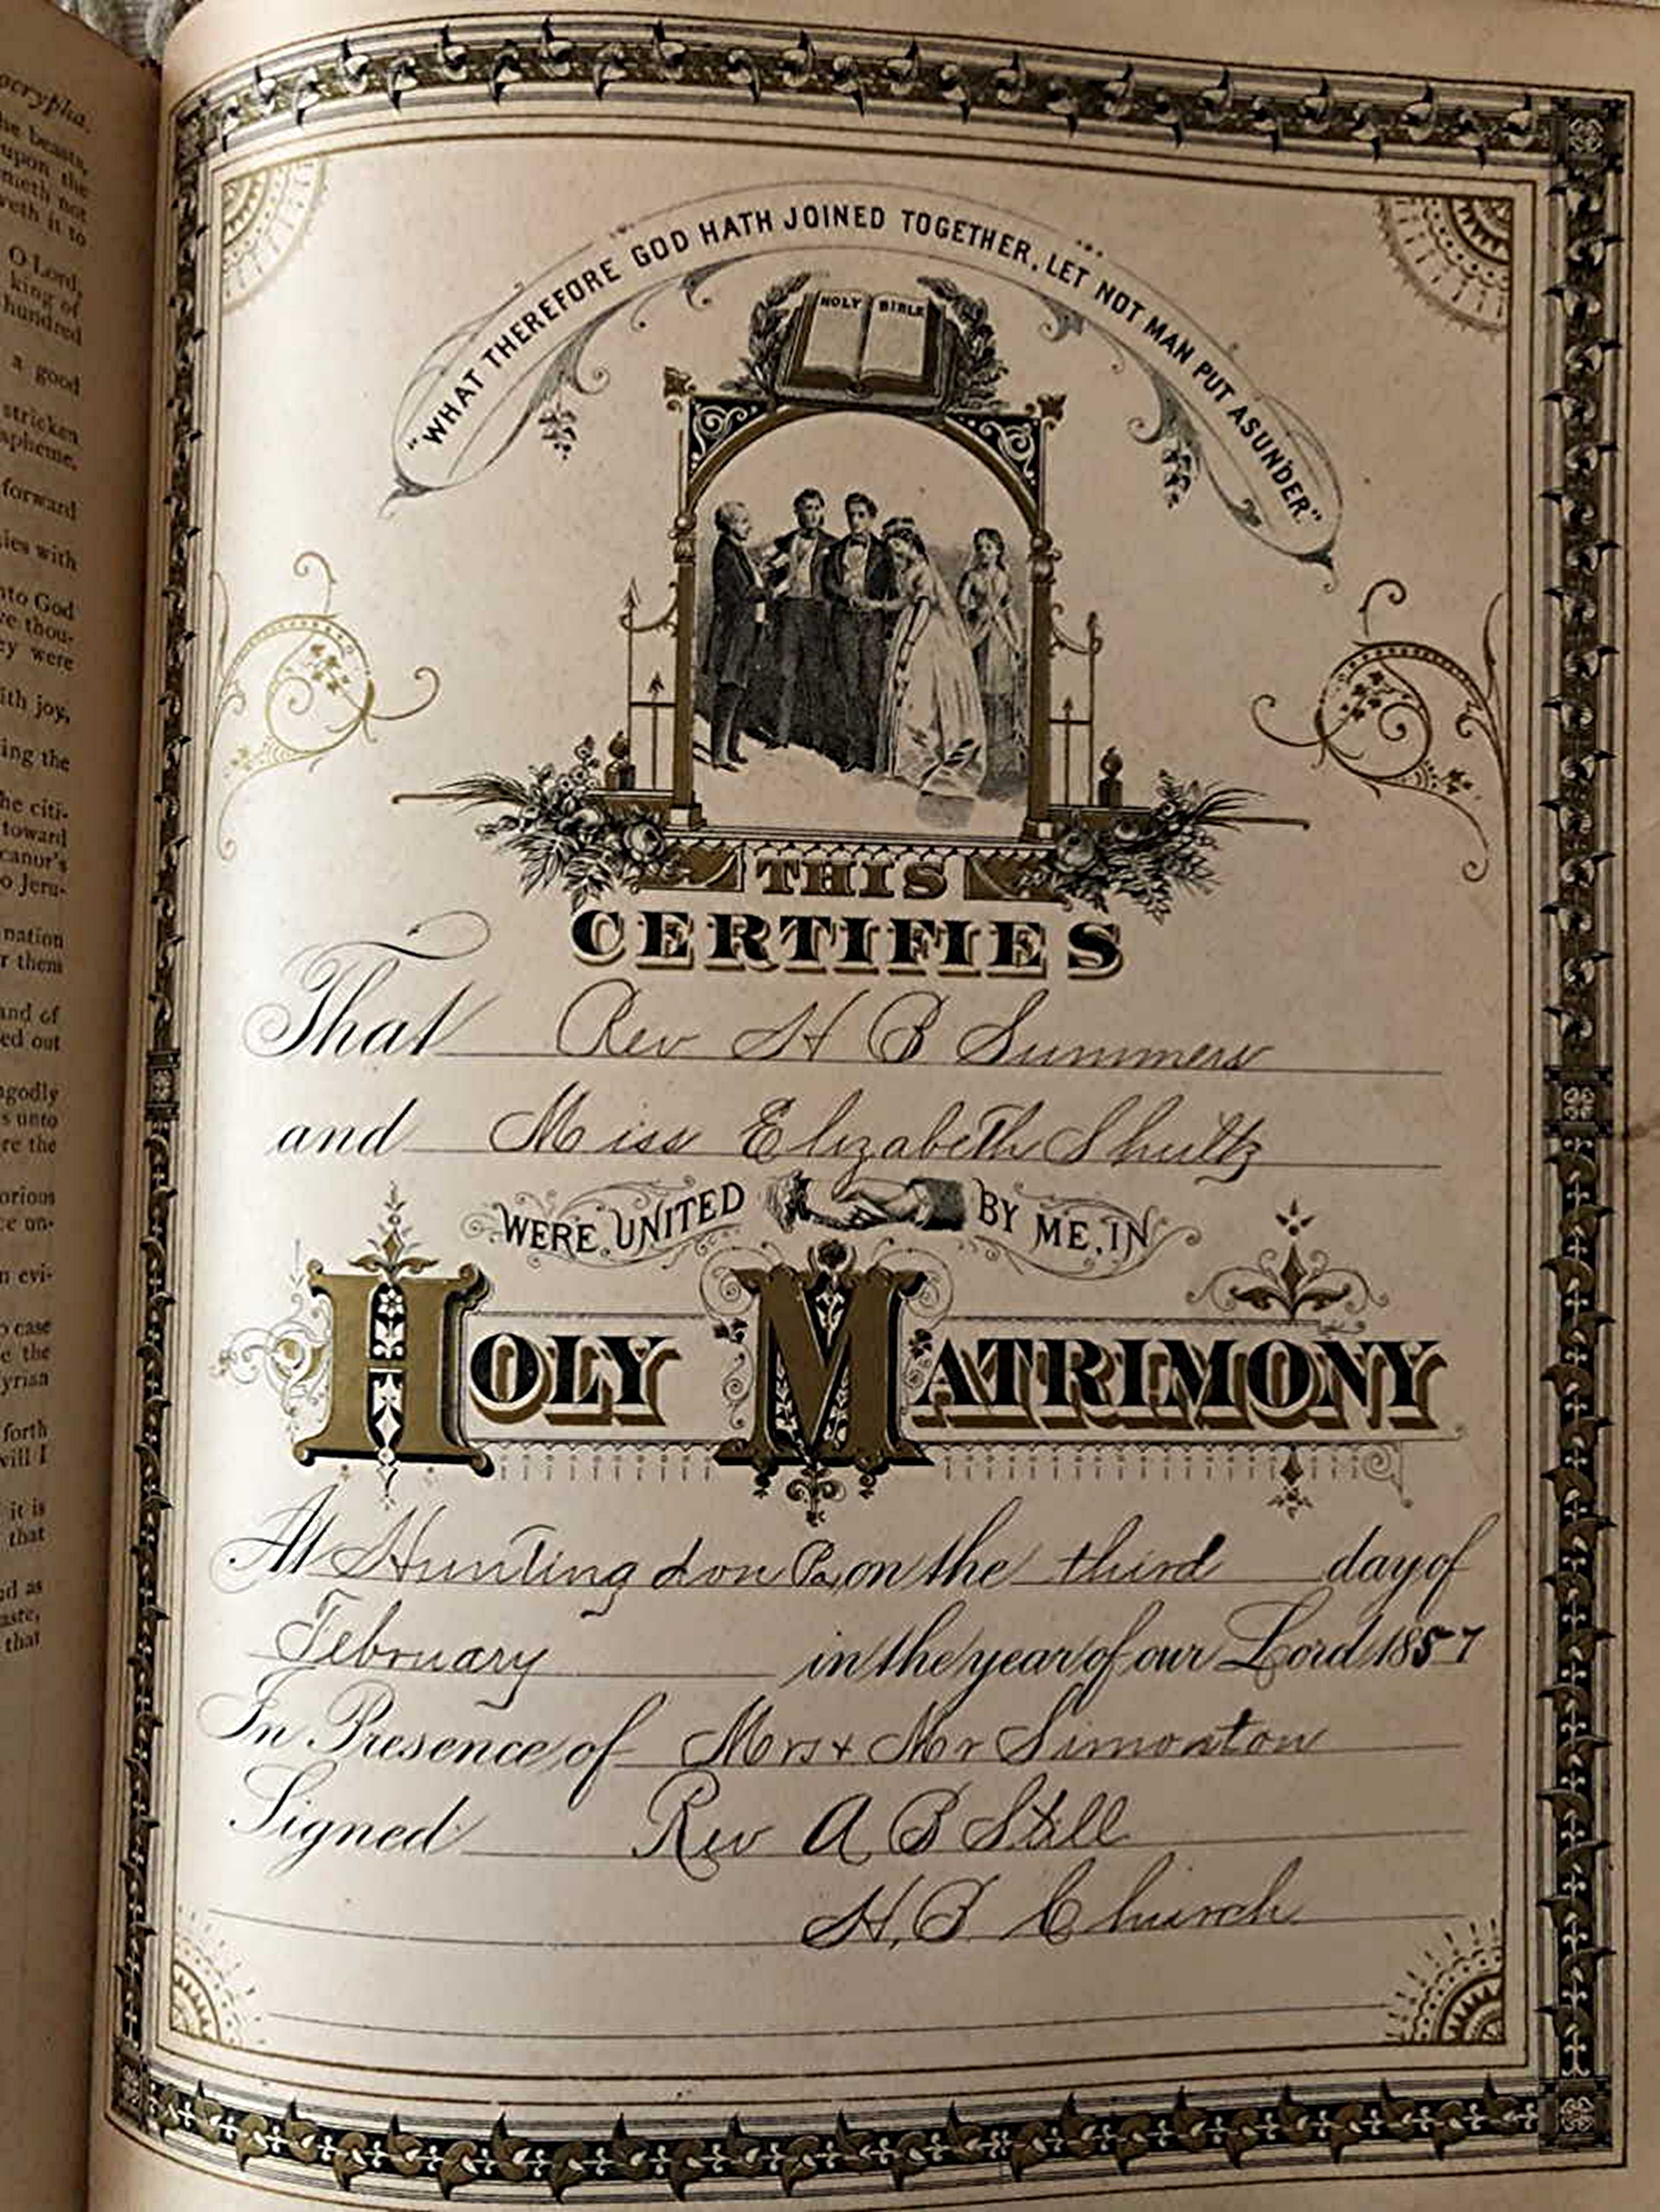 ocrypha.
he beasts,
upon the
meth not
veth it to
O Lord,
king of
hundred
a good
stricken
spheme.
forward
ies with
nto God
ve thou-
ey were
ith joy,
ing the
he citi-
toward
canor's
o Jeru-
nation
r them
and of
ed out
ngodly
s unto
re the
orious
ce un-
n evi-
o case
e the
yrian
forth
will I
it is
that
ed as
aste,
that
"WHAT THEREFORE GOD HATH JOINED TOGETHER, LET NOT MAN PUT ASUNDER."
HOLY BIBLE
THIS
CERTIFIES
That Rev H B Summers
and Miss Elizabeth Shultz
WERE UNITED BY ME, IN
HOLY MATRIMONY
At Huntingdon Pa, on the third day of
February in the year of our Lord 1857
In Presence of Mrs + Mr Simonton
Signed Rev A B Still
H. B. Church